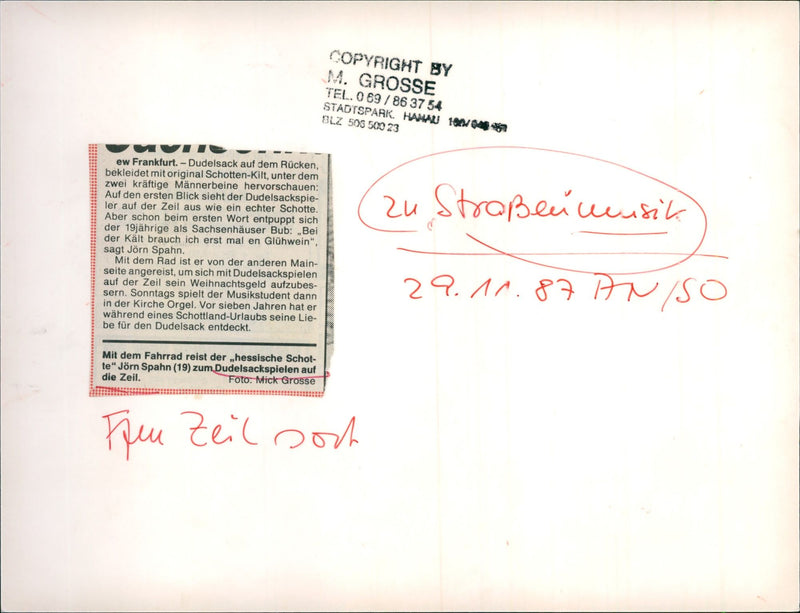 COPYRIGHT BY
M. GROSSE
TEL. 0 69 / 86 37 54
STADTSPARK. HANAU
BLZ 506 500 23
ew Frankfurt. – Dudelsack auf dem Rücken,
bekleidet mit original Schotten-Kilt, unter dem
zwei kräftige Männerbeine hervorschauen:
Auf den ersten Blick sieht der Dudelsackspie-
ler auf der Zeil aus wie ein echter Schotte.
Aber schon beim ersten Wort entpuppt sich
der 19jährige als Sachsenhäuser Bub: „Bei
der Kält brauch ich erst mal en Glühwein",
sagt Jörn Spahn.
Mit dem Rad ist er von der anderen Main-
seite angereist, um sich mit Dudelsackspielen
auf der Zeil sein Weihnachtsgeld aufzubes-
sern. Sonntags spielt der Musikstudent dann
in der Kirche Orgel. Vor sieben Jahren hat er
während eines Schottland-Urlaubs seine Lie-
be für den Dudelsack entdeckt.
Mit dem Fahrrad reist der „hessische Schot-
te" Jörn Spahn (19) zum Dudelsackspielen auf
die Zeil.
Foto: Mick Grosse
zu Straßenmusik
29.11.87 AN/SO
Ffm Zeil